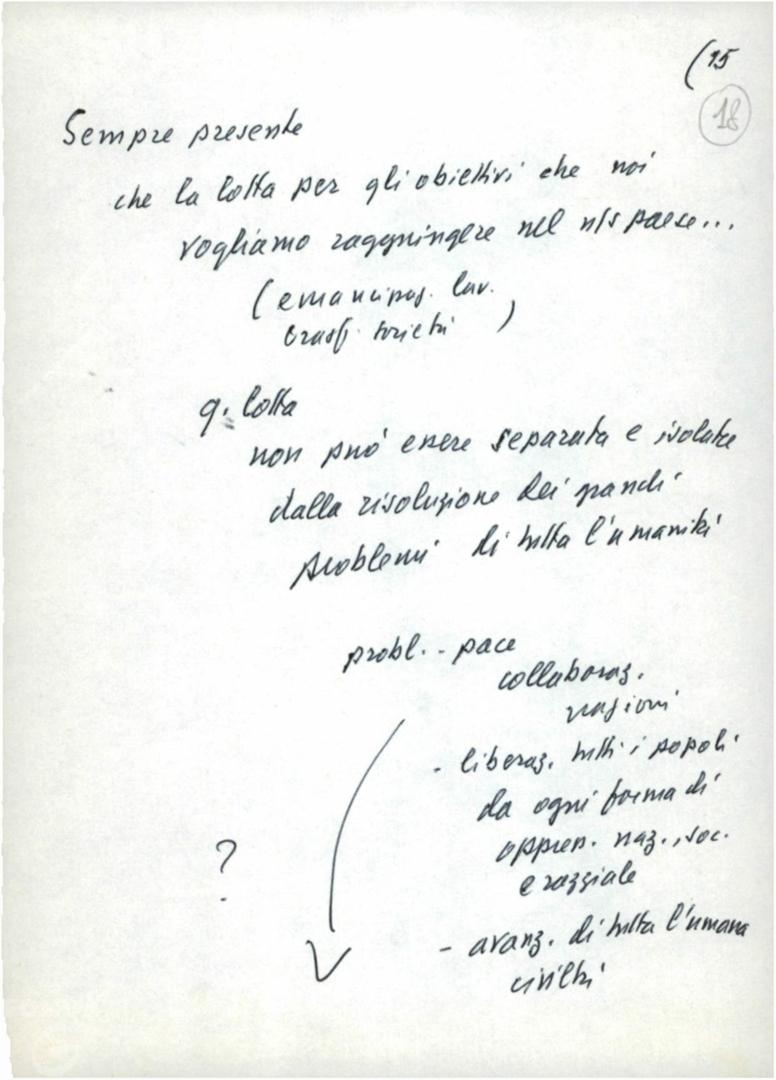 (15
18
Sempre presente
che la lotta per gli obiettivi che noi
vogliamo raggiungere nel n/s paese...
(emancipaz. lav.
trasf. società)
q. lotta
non può essere separata e isolata
dalla risoluzione dei grandi
problemi di tutta l'umanità
probl. - pace
collaboraz.
nazioni
- liberaz. tutti i popoli
da ogni forma di
oppress. naz., soc.
e razziale
?
- avanz. di tutta l'umana
civiltà